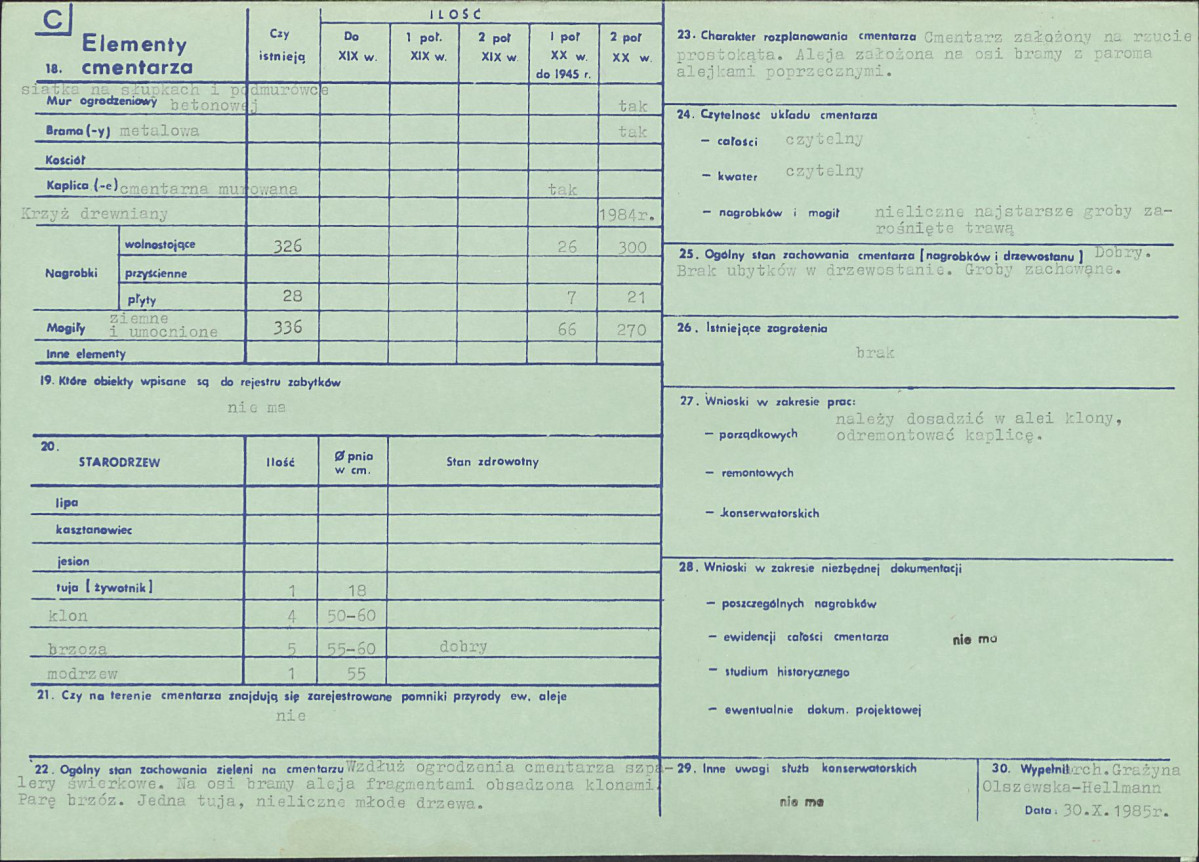 C
Elementy
18. cmentarza
Czy
istnieją
ILOŚĆ
Do
XIX w.
1 poł.
XIX w.
2 poł
XIX w.
I poł
XX w.
do 1945 r.
2 poł
XX w.
siatka na słupkach i podmurówce
Mur ogrodzeniowy betonowej tak
Brama (-y) metalowa tak
Kościół
Kaplica (-e) cmentarna murowana tak
Krzyż drewniany 1984r.
Nagrobki
wolnostojące 326 26 300
przyścienne
płyty 28 7 21
ziemne
Mogiły i umocnione 336 66 270
Inne elementy
19. Które obiekty wpisane są do rejestru zabytków
nie ma
20.
STARODRZEW
Ilość
Ø pnia
w cm.
Stan zdrowotny
lipa
kasztanowiec
jesion
tuja [żywotnik] 1 18
klon 4 50-60
brzoza 5 55-60 dobry
modrzew 1 55
21. Czy na terenie cmentarza znajdują się zarejestrowane pomniki przyrody ew. aleje
nie
22. Ogólny stan zachowania zieleni na cmentarzu Wzdłuż ogrodzenia cmentarza szpa-
lery świerkowe. Na osi bramy aleja fragmentami obsadzona klonami.
Parę brzóz. Jedna tuja, nieliczne młode drzewa.
23. Charakter rozplanowania cmentarza Cmentarz założony na rzucie
prostokąta. Aleja założona na osi bramy z paroma
alejkami poprzecznymi.
24. Czytelność układu cmentarza
– całości czytelny
– kwater czytelny
– nagrobków i mogił nieliczne najstarsze groby za-
rośnięte trawą
25. Ogólny stan zachowania cmentarza [nagrobków i drzewostanu] Dobry.
Brak ubytków w drzewostanie. Groby zachowane.
26. Istniejące zagrożenia
brak
27. Wnioski w zakresie prac:
należy dosadzić w alei klony,
– porządkowych odremontować kaplicę.
– remontowych
– konserwatorskich
28. Wnioski w zakresie niezbędnej dokumentacji
– poszczególnych nagrobków
– ewidencji całości cmentarza nie ma
– studium historycznego
– ewentualnie dokum. projektowej
29. Inne uwagi służb konserwatorskich
nie ma
30. Wypełnił arch. Grażyna
Olszewska-Hellmann
Data: 30.X.1985r.